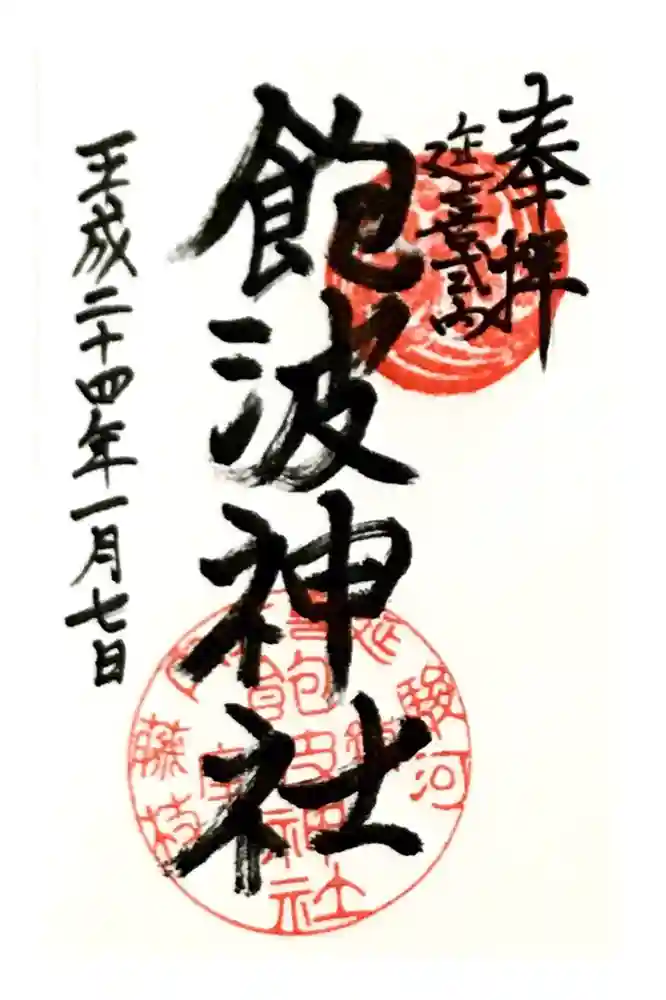 奉拝
延喜式内
飽波神社
平成二十四年一月七日
駿河
延喜式内
鎮座
藤枝
飽波神社